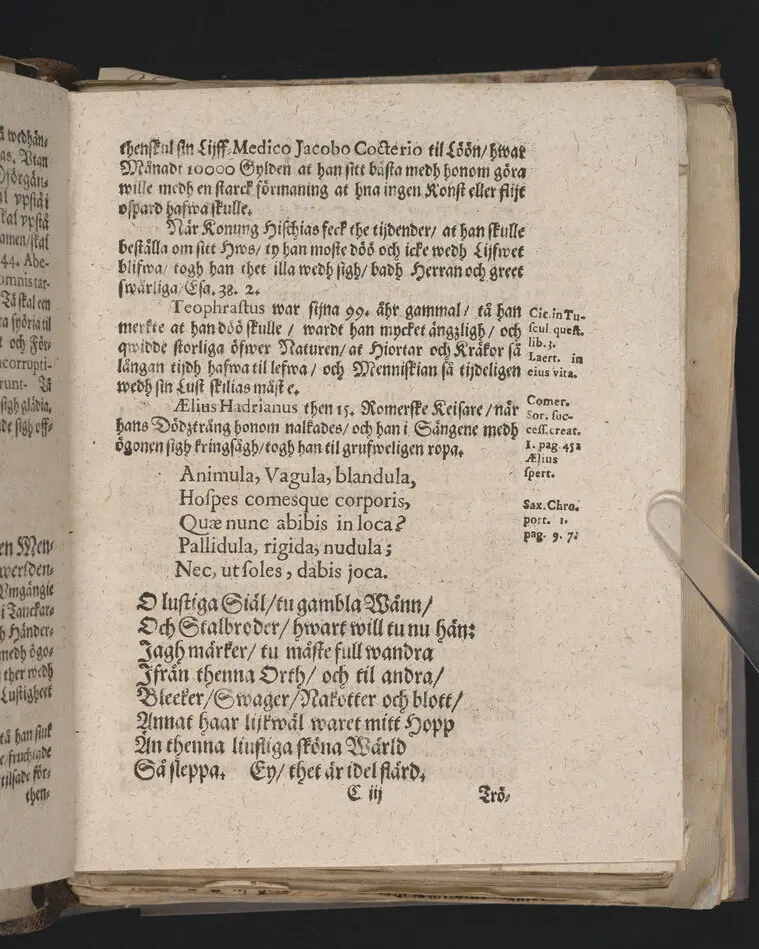 å wedhän-
as. Vtan
Oförgän-
al vpstå i
kal vpstå
amen/skal
44. Abe-
omnis tar-
Tå skal een
ra spöria til
t och För-
ncorrupti-
runt- Tå
sigh glädia,
de sigh off-
en Men-
werlden-
Vmgängie
i Tanckar-
h Händer-
medh ögo-
ther wedh
Lustigheet
tå han siuk
e/fruchtade
tilsade för-
then-
thenskul sin Lijff-Medico Jacobo Cocterio til Löön/hwar
Månadt 10000 Gylden at han sitt bästa medh honom göra
wille medh en starck förmaning at hna ingen Konst eller flijt
ospard hafwa skulle.
När Konung Hischias feck the tijdender/ at han skulle
beställa om sitt Hws/ ty han moste döö och icke wedh Lijfwet
blifwa/ togh han thet illa wedh sigh/ badh Herran och greet
swårliga/Esa. 38. 2.
Teophrastus war sijna 99. åhr gammal/ tå han
merkte at han döö skulle/ wardt han mycket ängzligh/ och
qwidde storliga öfwer Naturen/at Hiortar och Kråkor så
långan tijdh hafwa til lefwa/ och Menniskian så tijdeligen
wedh sin Lust skilias måste.
Cic. in Tu-
scul. quest.
lib. 3.
Laert. in
eius vita.
Ælius Hadrianus then 15. Romerske Keisare/när
hans Dödzträng honom nalkades/ och han i Sängene medh
ögonen sigh kringsågh/togh han til grufweligen ropa.
Comer.
Sor. suc-
cess. creat.
1. pag. 452
Ælius
spert.
Animula, Vagula, blandula,
Hospes comesque corporis,
Quæ nunc abibis in loca?
Pallidula, rigida, nudula;
Nec, ut soles, dabis joca.
Sax. Chro.
port. 1.
pag. 9. 7.
O lustiga Siäl/tu gambla Wänn/
Och Stalbroder/ hwart will tu nu hän:
Jagh märker/ tu måste full wandra
Ifrån thenna Orth/ och til andra/
Bleeker/Swager/Nakotter och blott/
Annat haar lijkwäl waret mitt Hopp
Än thenna liufliga sköna Wärld
Så sleppa. Ey/ thet är idel flärd.
C iij
Trö-